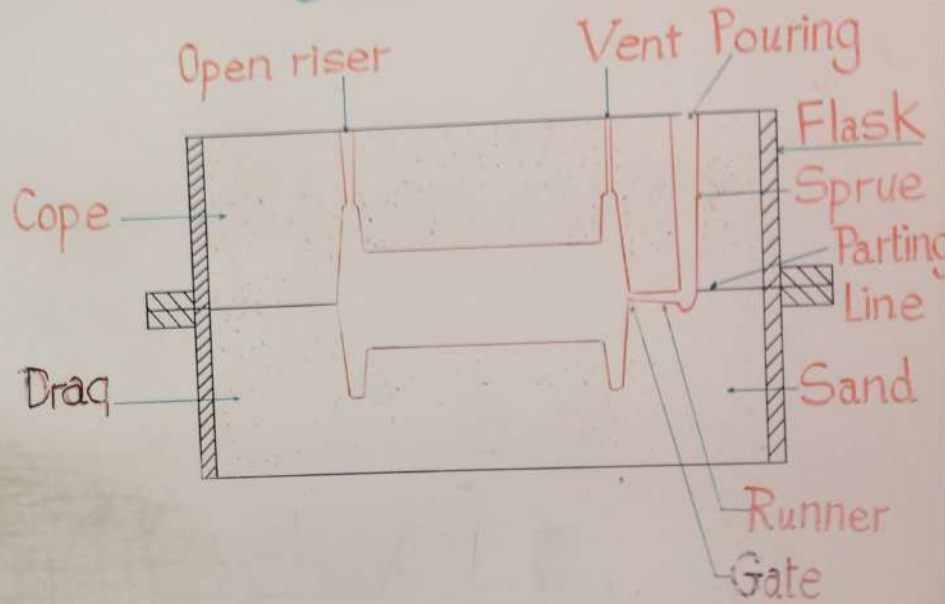 Open riser
Vent
Pouring
Flask
Cope
Sprue
Parting
Line
Drag
Sand
Runner
Gate